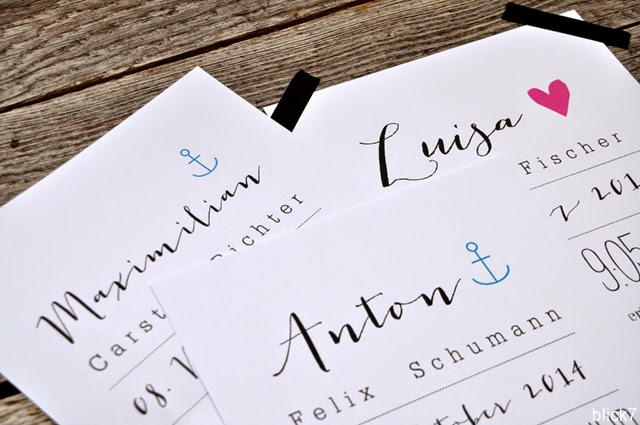 Maximilian
Carst Richter
08.
Luisa
Fischer
201
9:05
Anton
Felix Schumann
tober 2014
blick7